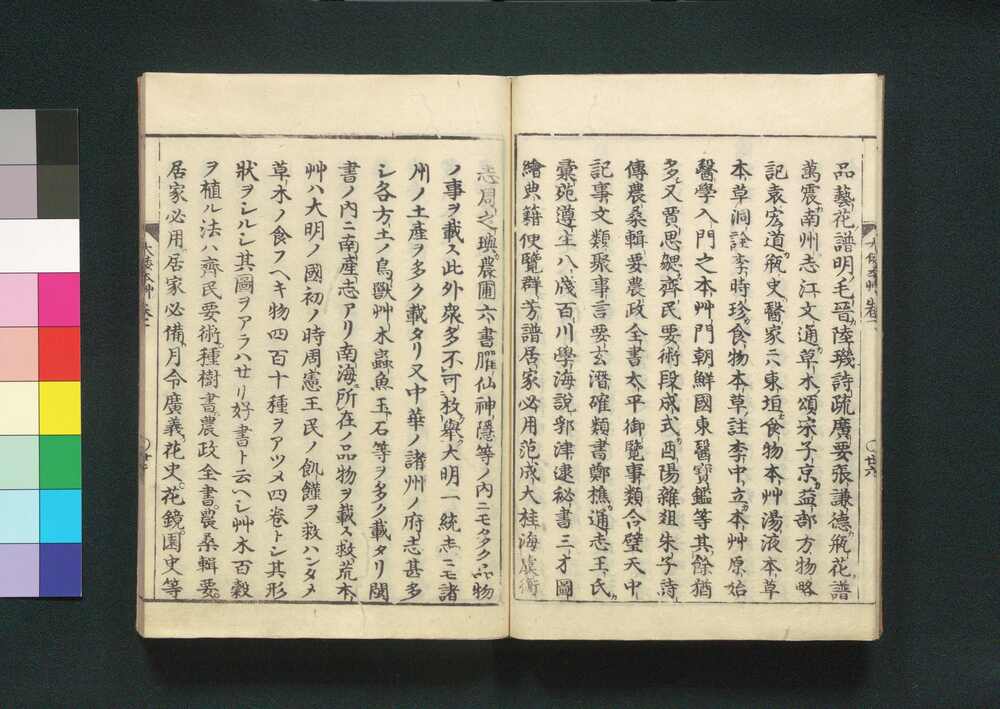 品藝花譜明毛晉陸璣詩疏廣要張謙德ガ瓶花譜
萬震ガ南州志江文通ガ草木頌宋子京ガ益部方物略
記袁宏道ガ瓶史醫家ニハ東垣ガ食物本艸湯液本草
本草洞詮李時珍ガ食物本草註李中立ガ本艸原始
醫學入門之本艸門朝鮮國東醫寳鑑等其餘猶
多又賈思勰ガ齊民要術段成式ガ酉陽雜俎朱子詩
傳農桑輯要農政全書太平御覽事類合璧天中
記事文類聚事言要玄潛確類書鄭樵ガ通志王氏ガ
彙苑遵生八牋百川學海說郛津逮秘書三才圖
繪典籍便覽群芳譜居家必用范成大桂海虞衡
志周之璵ガ農圃六書臞仙神隱等ノ內ニモタクク品物
ノ事ヲ載ス此外衆多不可枚舉大明一統志ニモ諸
州ノ土產ヲ多ク載タリ又中華ノ諸州ノ府志甚多
シ各方土ノ鳥獸艸木蟲魚玉石等ヲ多ク載タリ閩
書ノ內ニ南產志アリ南海所在ノ品物ヲ載ス救荒本
艸ハ大明ノ國初ノ時周憲王民ノ飢饉ヲ救ハンタメ
草木ノ食フヘキ物四百十種ヲアツメ四卷トシ其形
狀ヲシルシ其圖ヲアラハセリ好書ト云ヘシ艸木百穀
ヲ植ル法ハ齊民要術種樹書農政全書農桑輯要
居家必用居家必備月令廣義花史花鏡園史等
大倭本艸卷一
〇廿六